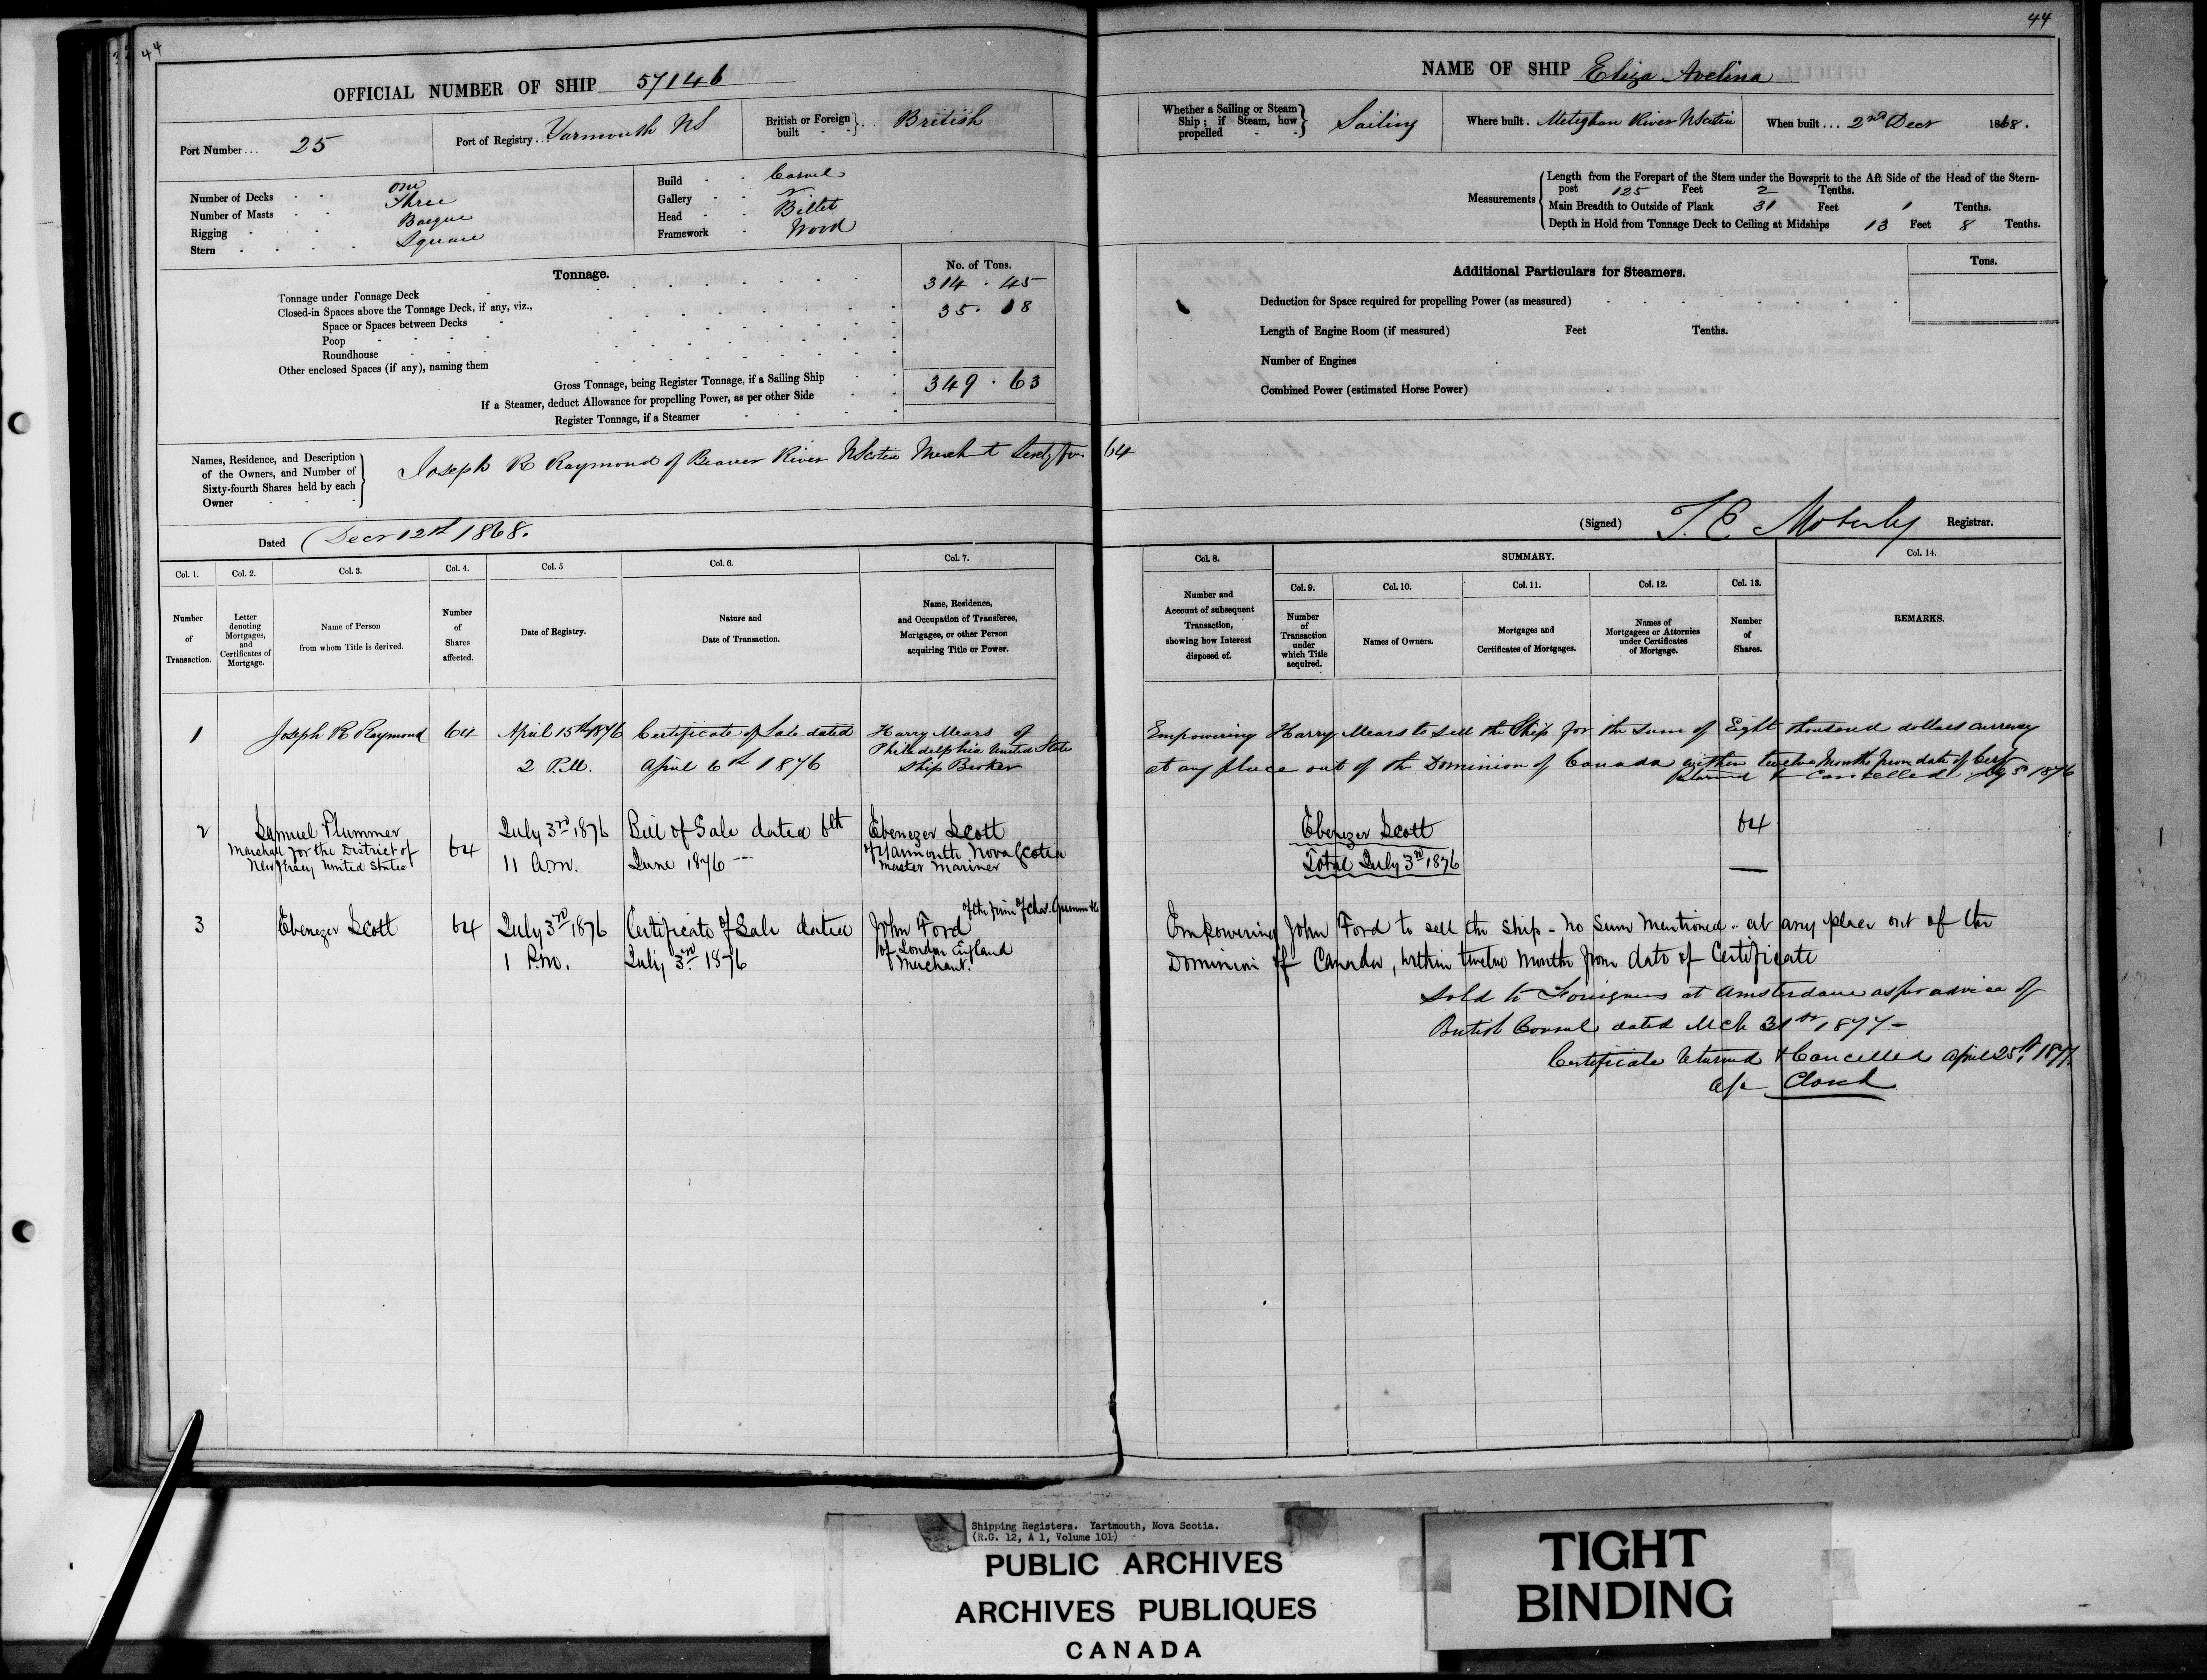 44
OFFICIAL NUMBER OF SHIP 57146
Port Number... 25
Port of Registry... Yarmouth NS
British or Foreign built British
Number of Decks one
Number of Masts Three
Rigging Barque
Stern Square
Build Carvel
Gallery
Head Billet
Framework Wood
Tonnage.
No. of Tons.
Tonnage under Tonnage Deck 314.45
Closed-in Spaces above the Tonnage Deck, if any, viz.,
Space or Spaces between Decks 35.18
Poop
Roundhouse
Other enclosed Spaces (if any), naming them
Gross Tonnage, being Register Tonnage, if a Sailing Ship 349.63
If a Steamer, deduct Allowance for propelling Power, as per other Side
Register Tonnage, if a Steamer
Names, Residence, and Description of the Owners, and Number of Sixty-fourth Shares held by each Owner
Joseph R Raymond of Beaver River NScotia Merchant Sixty four 64
Dated Decr 12th 1868.
Col. 1. Number of Transaction.
Col. 2. Letter denoting Mortgages, and Certificates of Mortgage.
Col. 3. Name of Person from whom Title is derived.
Col. 4. Number of Shares affected.
Col. 5 Date of Registry.
Col. 6. Nature and Date of Transaction.
Col. 7. Name, Residence, and Occupation of Transferee, Mortgagee, or other Person acquiring Title or Power.
1 Joseph R Raymond 64 April 15th 1876 2 P.M. Certificate of Sale dated April 6th 1876 Harry Mears of Philadelphia United States Ship Broker
2 Samuel Plummer Marshall for the District of New Jersey United States 64 July 3rd 1876 11 a.m. Bill of Sale dated 6th June 1876 Ebenezer Scott of Yarmouth Nova Scotia Master Mariner
3 Ebenezer Scott 64 July 3rd 1876 1 P.m. Certificate of Sale dated July 3rd 1876 John Ford of the firm of Chas. of London England Merchant.
44
NAME OF SHIP Eliza Avelina
Whether a Sailing or Steam Ship; if Steam, how propelled Sailing
Where built. Meteghan River NScotia
When built... 2nd Decr 1868.
Measurements
Length from the Forepart of the Stem under the Bowsprit to the Aft Side of the Head of the Sternpost 125 Feet 2 Tenths.
Main Breadth to Outside of Plank 31 Feet 1 Tenths.
Depth in Hold from Tonnage Deck to Ceiling at Midships 13 Feet 8 Tenths.
Additional Particulars for Steamers.
Tons.
Deduction for Space required for propelling Power (as measured)
Length of Engine Room (if measured) Feet Tenths.
Number of Engines
Combined Power (estimated Horse Power)
(Signed) T. E. Moberly Registrar.
Col. 8. Number and Account of subsequent Transaction, showing how Interest disposed of.
SUMMARY.
Col. 9. Number of Transaction under which Title acquired.
Col. 10. Names of Owners.
Col. 11. Mortgages and Certificates of Mortgages.
Col. 12. Names of Mortgagees or Attornies under Certificates of Mortgage.
Col. 13. Number of Shares.
Col. 14. REMARKS.
Empowering Harry Mears to sell the Ship for the sum of Eight thousand dollars currency
at any place out of the Dominion of Canada within twelve Months from date of Cert
Returned & Cancelled 1876
Ebenezer Scott 64
Total July 3rd 1876
Empowering John Ford to sell the ship - no sum mentioned - at any place out of the
Dominion of Canada, within twelve months from date of Certificate
Sold to Foreigners at Amsterdam as per advice of
British Consul dated Mch 31st 1877 -
Certificate returned & Cancelled April 25th 1877.
a/c Closed
Shipping Registers. Yartmouth, Nova Scotia.
(R.G. 12, A 1, Volume 101)
PUBLIC ARCHIVES
ARCHIVES PUBLIQUES
CANADA
TIGHT
BINDING